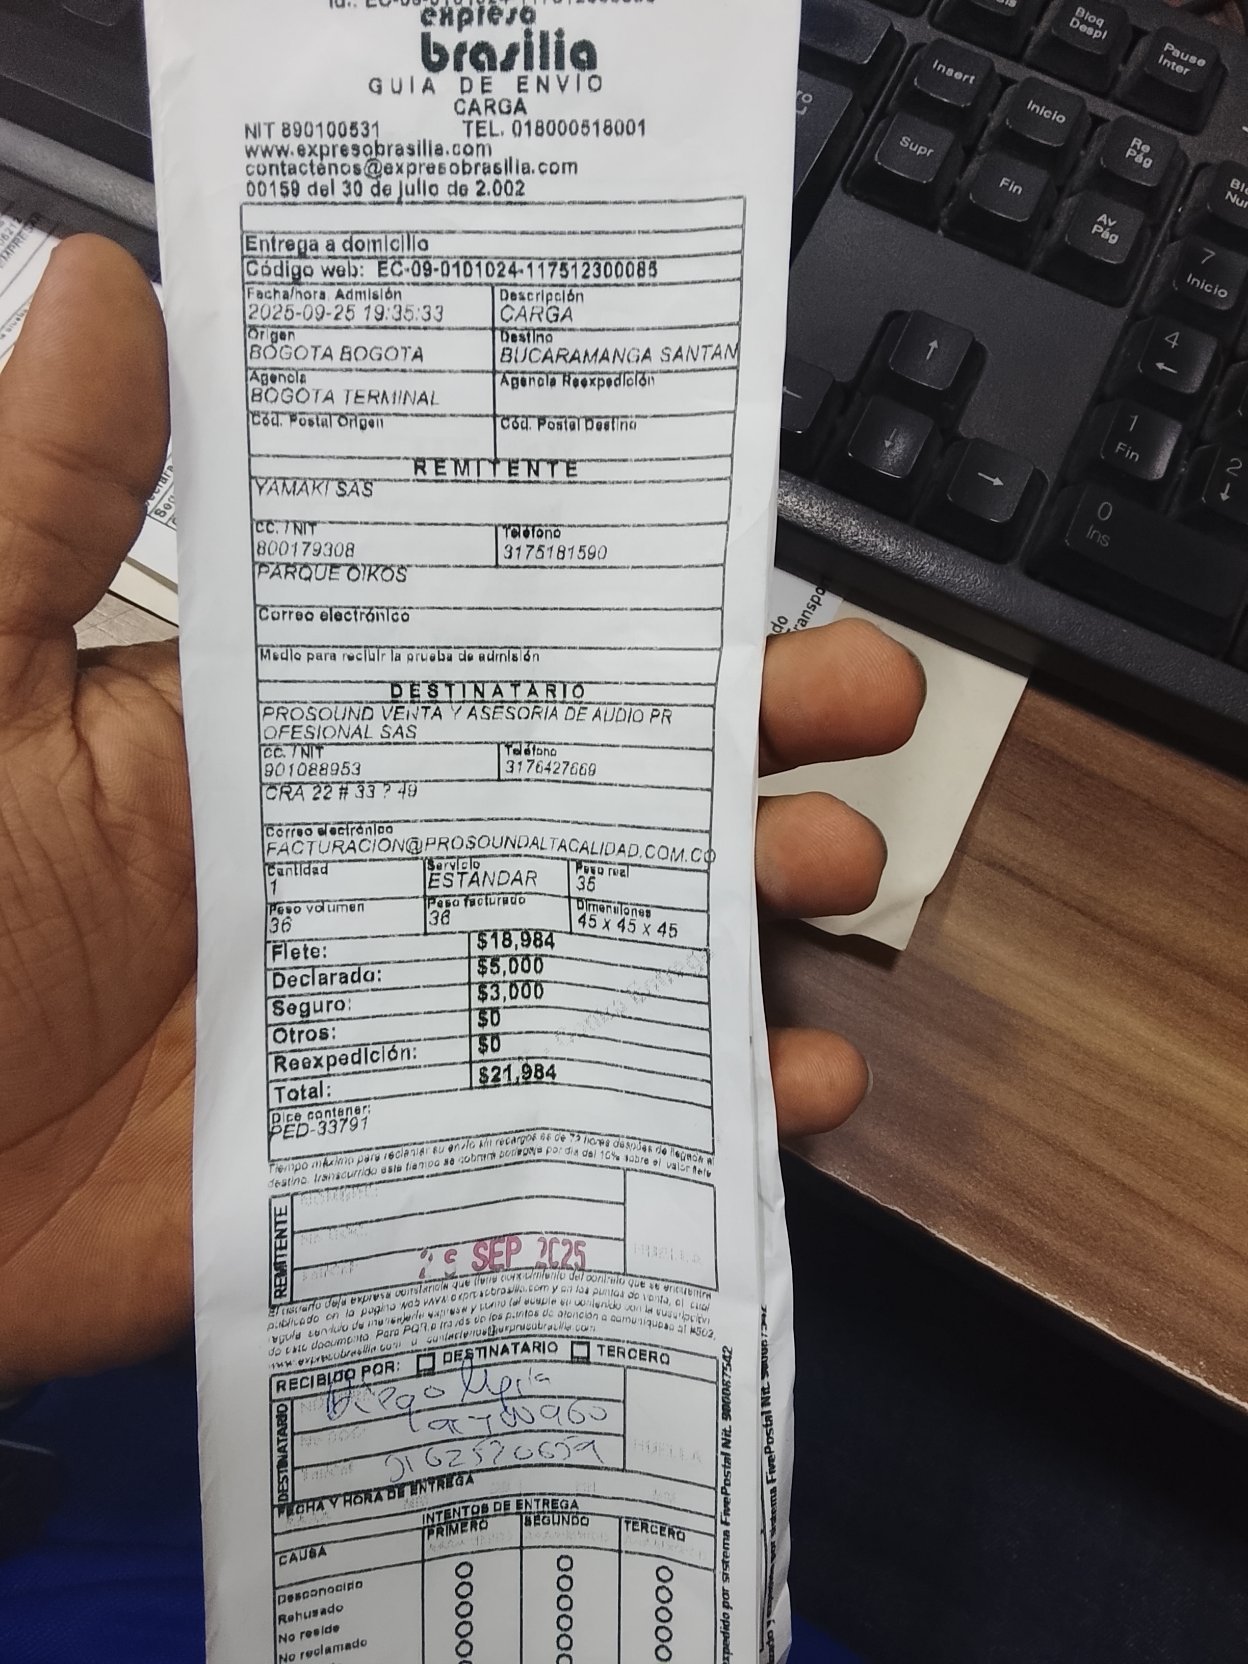 expreso
brasilia
GUIA DE ENVIO
CARGA
NIT 890100531 TEL. 018000518001
www.expresobrasilia.com
contactenos@expresobrasilia.com
00159 del 30 de julio de 2.002
Entrega a domicilio
Código web: EC-09-0101024-117512300085
Fecha/hora Admisión Descripción
2025-09-25 19:35:33 CARGA
Origen Destino
BOGOTA BOGOTA BUCARAMANGA SANTAN
Agencia Agencia Reexpedición
BOGOTA TERMINAL
Cód. Postal Origen Cód. Postal Destino
REMITENTE
YAMAKI SAS
CC. / NIT Teléfono
800179308 3175181590
PARQUE OIKOS
Correo electrónico
Medio para recibir la prueba de admisión
DESTINATARIO
PROSOUND VENTA Y ASESORIA DE AUDIO PR
OFESIONAL SAS
CC. / NIT Teléfono
901088953 3176427669
CRA 22 # 33 ? 49
Correo electrónico
FACTURACION@PROSOUNDALTACALIDAD.COM.CO
Cantidad Servicio Peso real
1 ESTANDAR 35
Peso volumen Peso facturado Dimensiones
36 36 45 x 45 x 45
Flete: $18,984
Declarado: $5,000
Seguro: $3,000
Otros: $0
Reexpedición: $0
Total: $21,984
Dice contener:
PED-33791
Tiempo máximo para reclamar su envío sin recargos es de 72 horas después de llegada a
destino, transcurrido este tiempo se cobrará bodegaje por día del 10% sobre el valor flete
REMITENTE
SEP 2025
El usuario deja expresa constancia que tiene conocimiento del contrato que se encuentra
publicado en la pagina web www.expresobrasilia.com y en los puntos de venta, el cual
regula servicio de mensajería expresa y como tal acepta su contenido con la suscripción
de este documento. Para PQR a través de los puntos de atención a comuniquese al #502,
www.expresobrasilia.com o contactenos@expresobrasilia.com
RECIBIDO POR: DESTINATARIO TERCERO
DESTINATARIO
Diego
HUELLA
FECHA Y HORA DE ENTREGA
INTENTOS DE ENTREGA
CAUSA PRIMERO SEGUNDO TERCERO
Desconocido
Rehusado
No reside
No reclamado
expedido por sistema FivePostal Nit. 900087542
Insert
Inicio
Re Pág
Supr
Fin
Av Pág
Bloq Despl
Pause Inter
7 Inicio
4
1 Fin
2
0 Ins